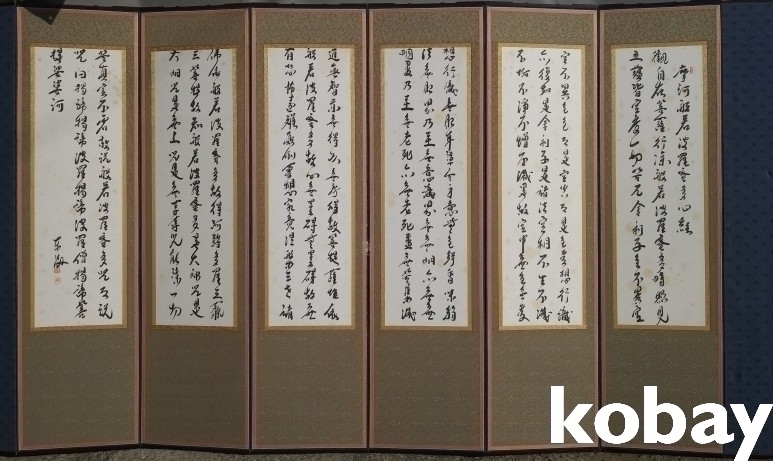 摩河般若波羅蜜多心經
觀自在菩薩行深般若波羅蜜多時照見
五蘊皆空度一切苦厄舍利子色不異空
空不異色色卽是空空卽是色受想行識
亦復如是舍利子是諸法空相不生不滅
不垢不淨不增不減是故空中無色無受
想行識無眼耳鼻舌身意無色聲香味觸
法無眼界乃至無意識界無無明亦無無
明盡乃至無老死亦無老死盡無苦集滅
道無智亦無得以無所得故菩提薩埵依
般若波羅蜜多故心無罣碍無罣碍故無
有恐怖遠離顚倒夢想究竟涅槃三世諸
佛依般若波羅蜜多故得阿耨多羅三藐
三菩提故知般若波羅蜜多是大神呪是
大明呪是無上呪是無等等呪能除一切
苦眞實不虛故說般若波羅蜜多呪卽說
呪曰揭諦揭諦波羅揭諦波羅僧揭諦菩
提娑婆河
kobay